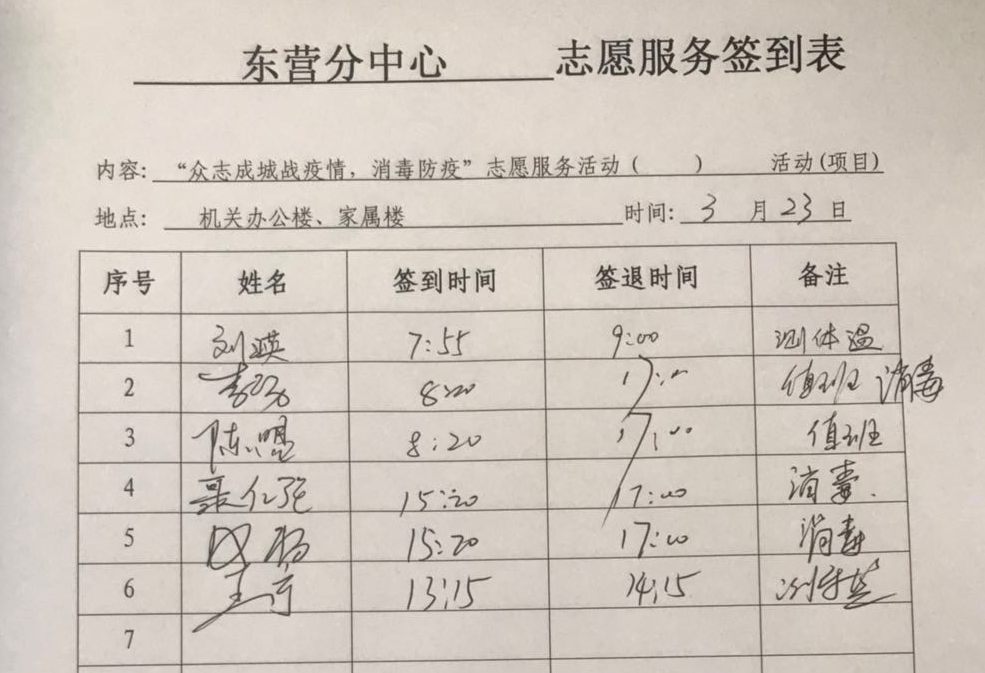 东营分中心 志愿服务签到表
内容: “众志成城战疫情，消毒防疫”志愿服务活动（ ） 活动(项目)
地点: 机关办公楼、家属楼 时间: 3 月 23 日
序号 姓名 签到时间 签退时间 备注
1 刘 7:55 9:00 测体温
2 8:20 17:00 值班 消毒
3 陈 8:20 17:00 值班
4 15:20 17:00 消毒.
5 15:20 17:00 消毒
6 13:15 14:15
7